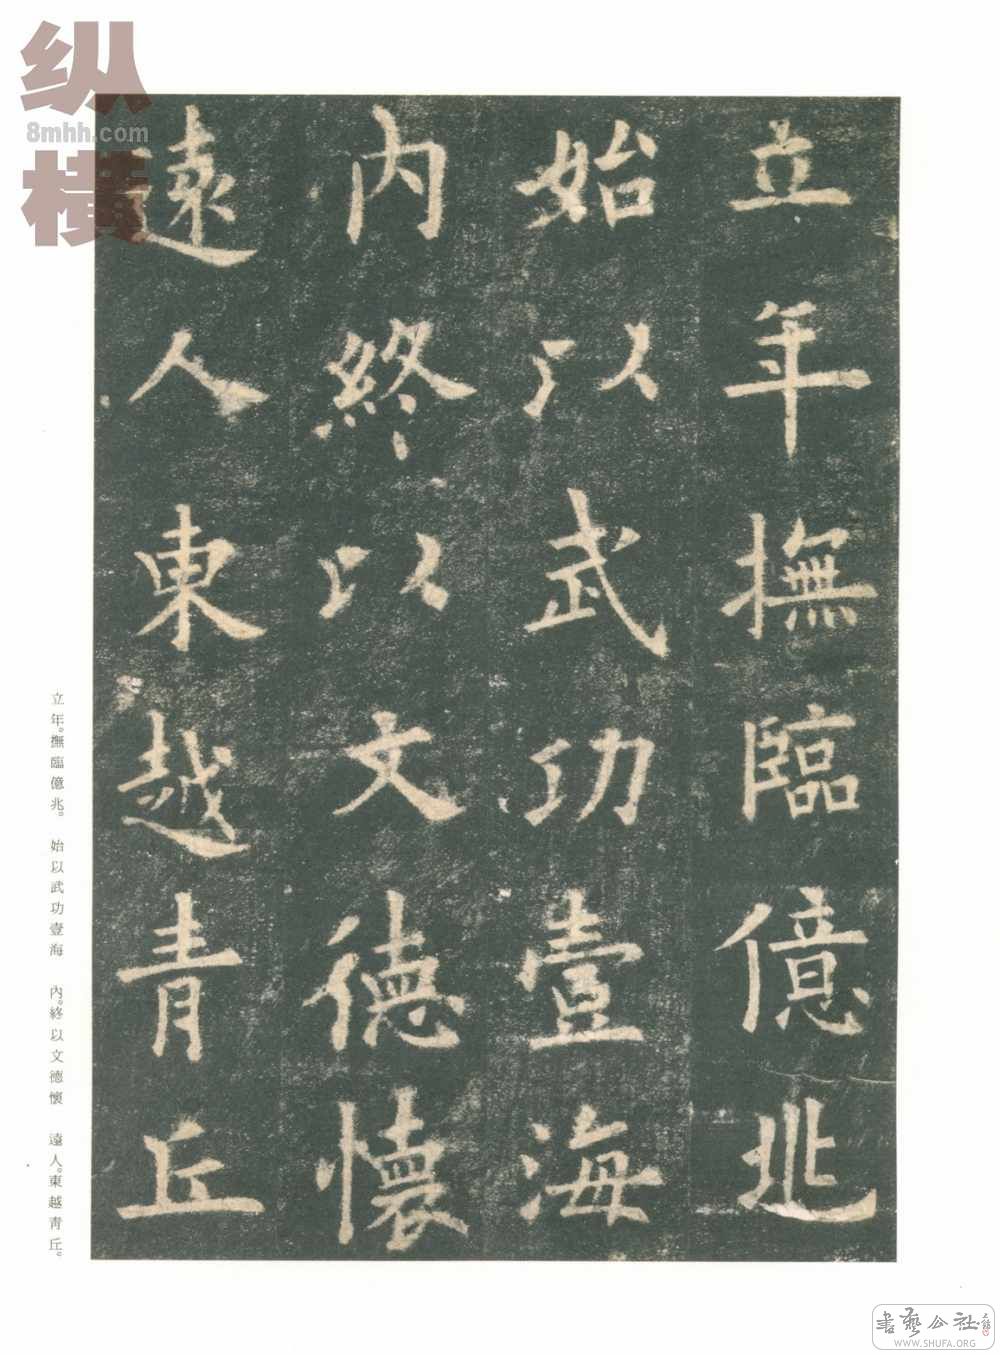 立年撫臨億兆
始以武功壹海
内終以文德懷
遠人東越青丘
立年。撫臨億兆。 始以武功壹海 內。終以文德懷 遠人。東越青丘。
纵横
8mhh.com
書藝公社
WWW.SHUFA.ORG